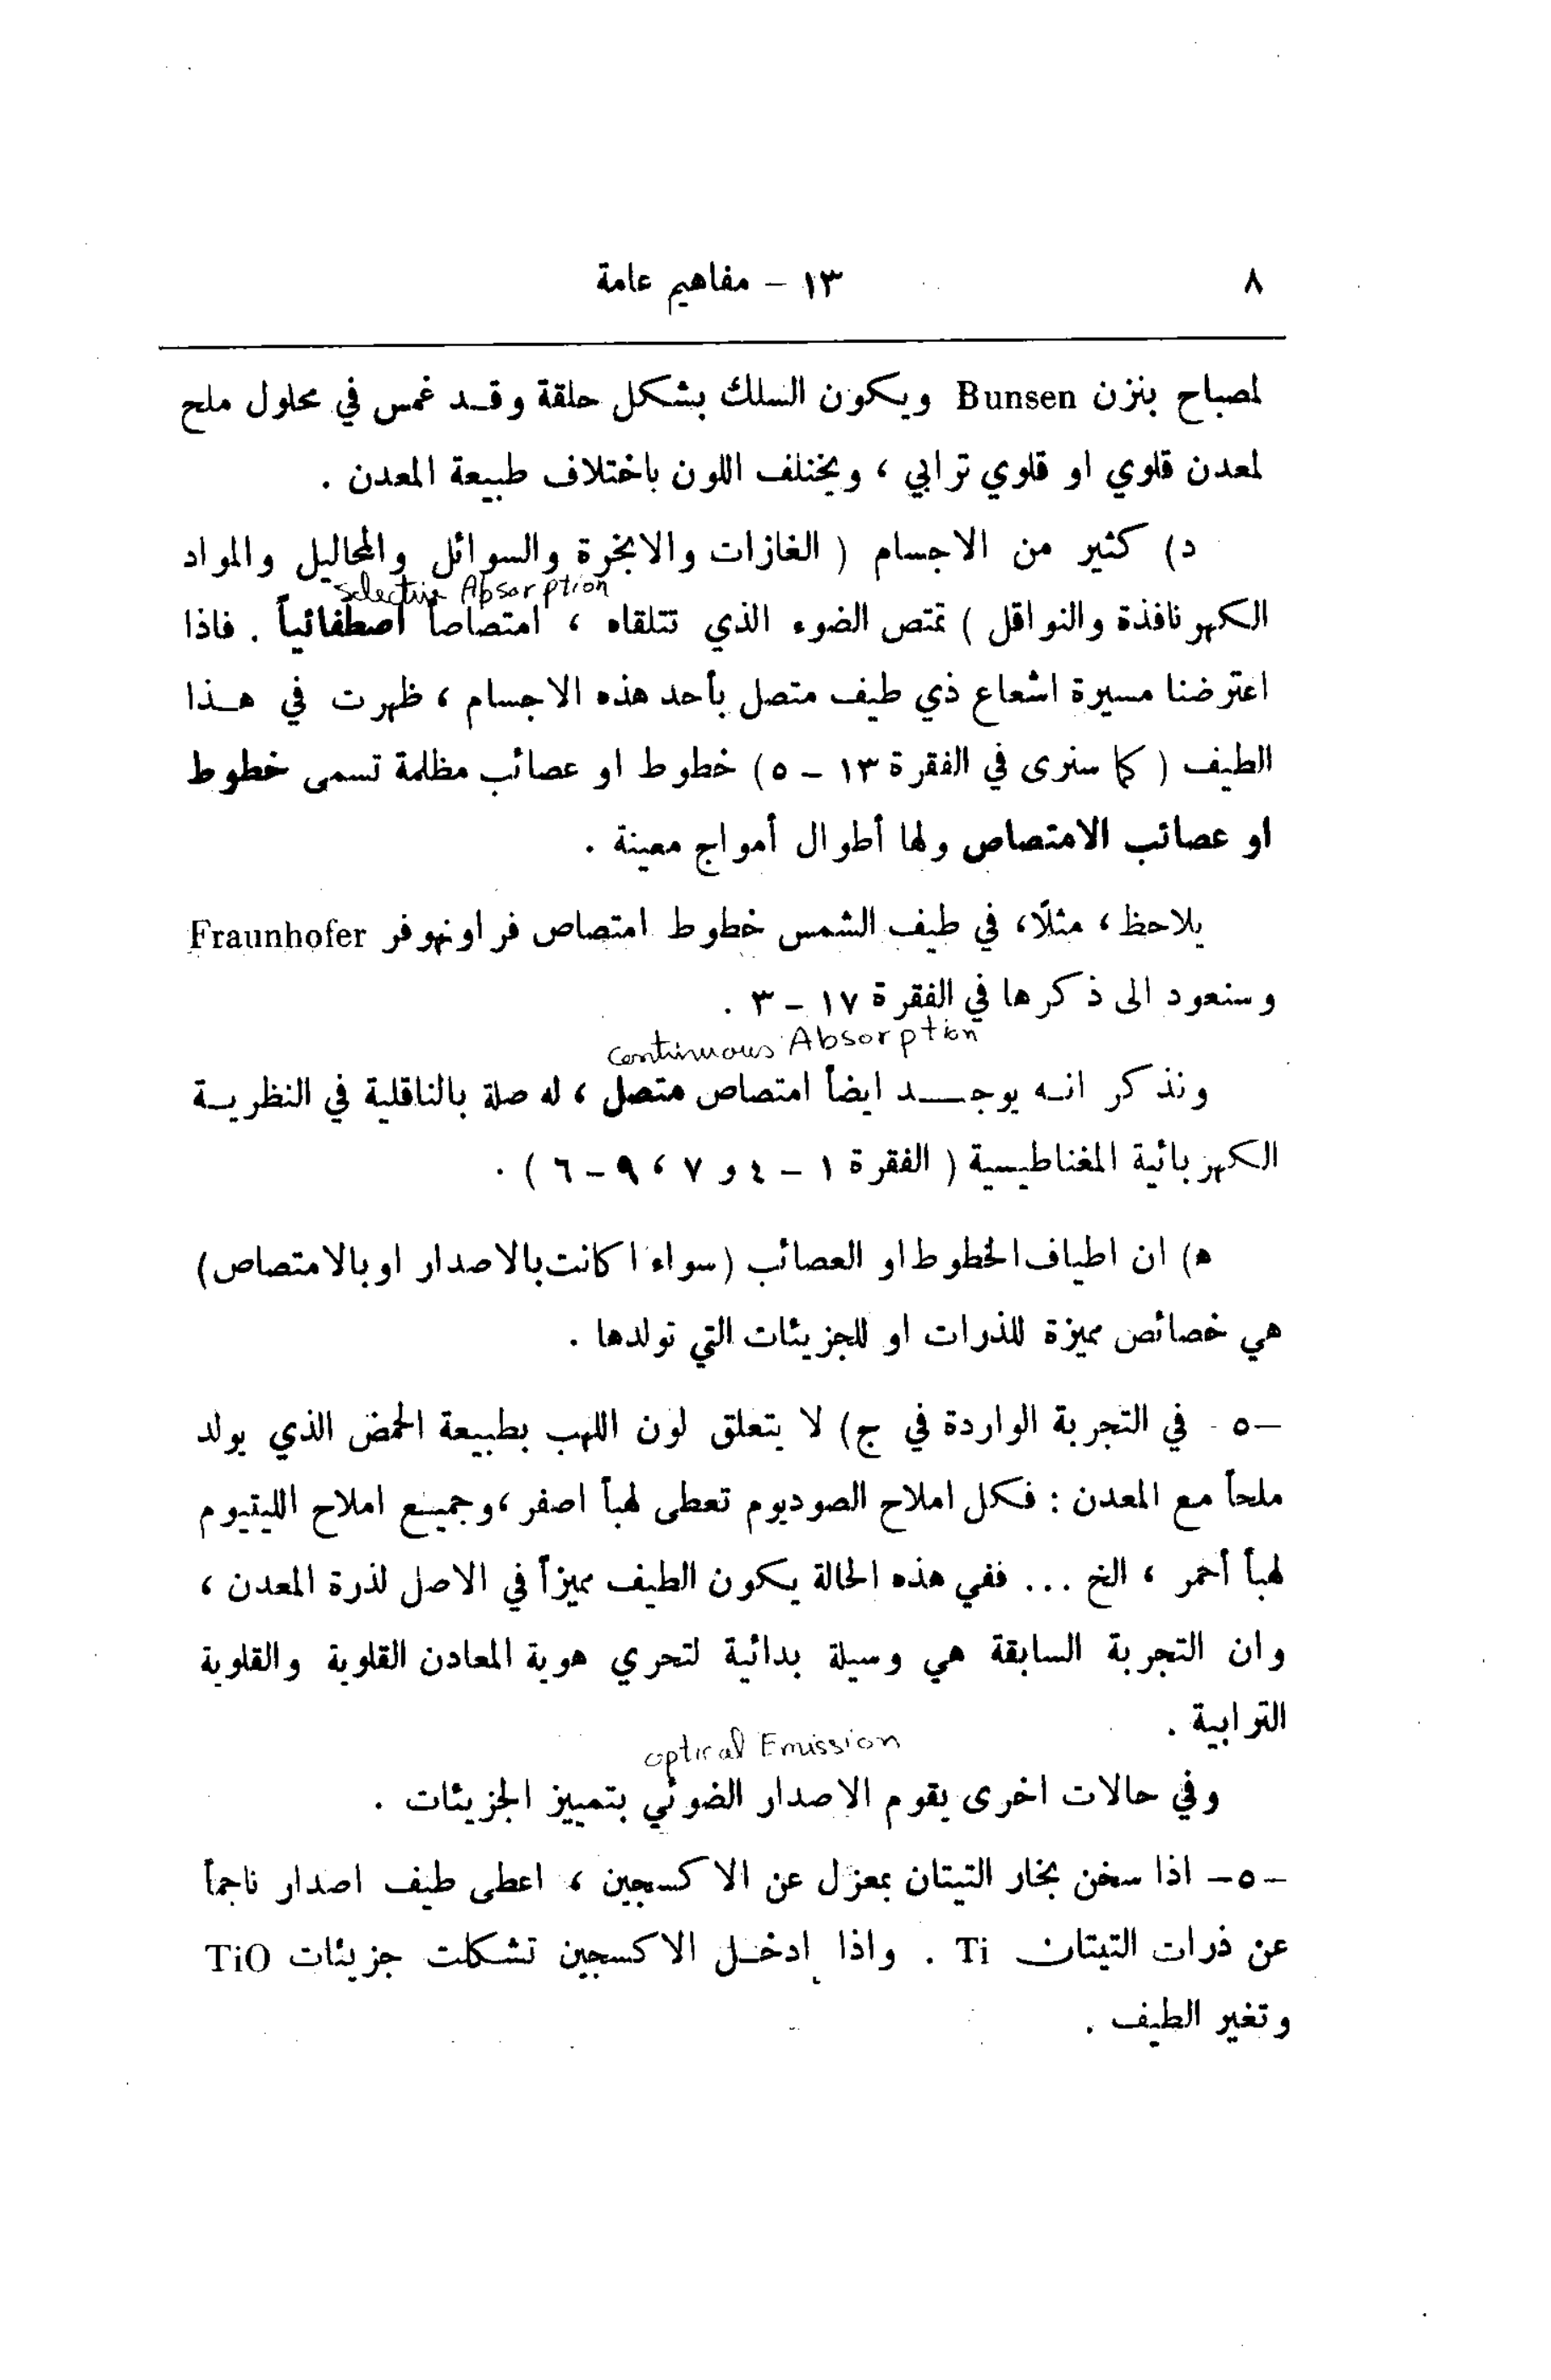 ٨
١٣ – مفاهيم عامة
لمصباح بنزن Bunsen ويكون السلك بشكل حلقة وقد غمس في محلول ملح
لمعدن قلوي او قلوي ترابي ، ويختلف اللون باختلاف طبيعة المعدن .
د) كثير من الاجسام ( الغازات والابخرة والسوائل والمحاليل والمواد
selective Absorption
الكهرنافذة والنواقل ) تمتص الضوء الذي تتلقاه ، امتصاصاً اصطفائياً . فاذا
اعترضنا مسيرة اشعاع ذي طيف متصل بأحد هذه الاجسام ، ظهرت في هذا
الطيف ( كما سنرى في الفقرة ١٣ – ٥) خطوط او عصائب مظلمة تسمى خطوط
او عصائب الامتصاص ولها أطوال أمواج معينة .
يلاحظ ، مثلًا ، في طيف الشمس خطوط امتصاص فراونهوفر Fraunhofer
وسنعود الى ذكرها في الفقرة ١٧ – ٣ .
continuous Absorption
ونذكر انه يوجد ايضاً امتصاص متصل ، له صلة بالناقلية في النظرية
الكهربائية المغناطيسية ( الفقرة ١ – ٤ و ٧ ، ٩ – ٦ ) .
ه) ان اطياف الخطوط او العصائب (سواء اكانت بالاصدار او بالامتصاص)
هي خصائص مميزة للذرات او للجزيئات التي تولدها .
–٥ – في التجربة الواردة في ج) لا يتعلق لون اللهب بطبيعة الحمض الذي يولد
ملحاً مع المعدن : فكل املاح الصوديوم تعطى لهباً اصفر ، وجميع املاح الليتيوم
لهباً أحمر ، الخ ... ففي هذه الحالة يكون الطيف مميزاً في الاصل لذرة المعدن ،
وان التجربة السابقة هي وسيلة بدائية لتحري هوية المعادن القلوية والقلوية
الترابية .
optical Emission
وفي حالات اخرى يقوم الاصدار الضوئي بتمييز الجزيئات .
–٥– اذا سخن بخار التيتان بمعزل عن الاكسجين ، اعطى طيف اصدار ناجماً
عن ذرات التيتان Ti . واذا إدخل الاكسجين تشكلت جزيئات TiO
وتغير الطيف .